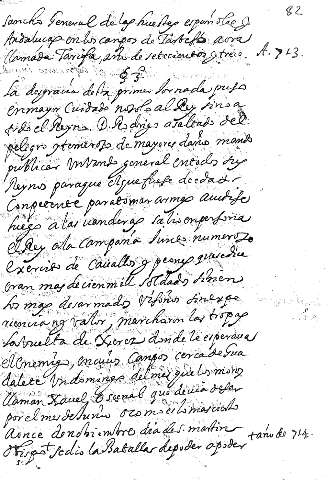 82
Sancho General de las huestes españolas y
Andaluzas en los campos de Tartessia aora
llamada Tarifa, año de setecientos y treze. A. 713.
§ 3º
La desgracia desta primer Jornada puso
en mayor Cuidado no solo al Rey sino a
todo el Reyno. D. Rodrigo asaltado del
peligro y temeroso de mayores daños mando
publicar un vando general en todo su
Reyno para que el que fuese de edad
Competente para tomar armas acudiese
luego a las vanderas salio en persona
el Rey a la campaña Junto numeroso
exercito de Cavallos y peones que se dice
eran mas de cien mil soldados si bien
los mas desarmados visoños sin expe
riencia ni valor, marcharon las tropas
la buelta de Xerez donde le esperava
el Enemigo, en cuios Campos cerca de Gua
dalete un domingo del mes que los moros
llaman Xavel
por el mes de Junio o como es lo mas cierto
a once de nobiembre dia de S. Martin
Obispo se dio la Batalla de poder a poder
año de 714.